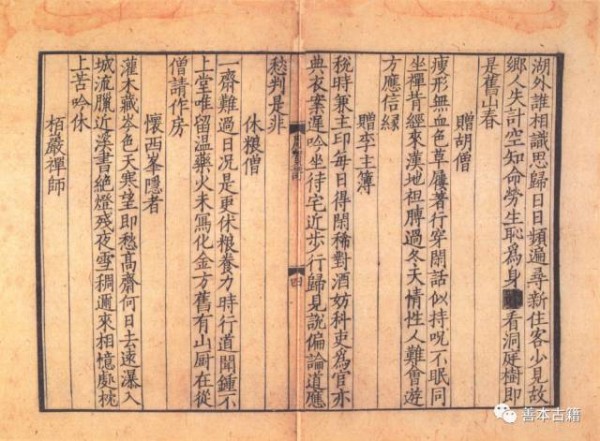 湖外誰相識思歸日日頻遍尋新住客少見故
鄉人失計空知命勞生恥爲身看洞庭樹即
是舊山春
贈胡僧
瘦形無血色草屨著行穿閑話似持呪不眠同
坐禪背經來漢地袒膊過冬天情性人難會遊
方應信緣
贈李主簿
稅時兼主印每日得閑稀對酒妨料吏爲官亦
典衣案遲吟坐待宅近步行歸見說偏論道應
愁判是非
休粮僧
一齋難過日况是更休粮養力時行道聞鍾不
上堂唯留温藥火未寫化金方舊有山厨在從
僧請作房
懷西峯隱者
灌木藏岑色天寒望即愁髙齋何日去逺瀑入
城流臘近溪書絶燈殘夜雪稠邇來相憶處枕
上苦吟休
栢巖禪師
四
善本古籍